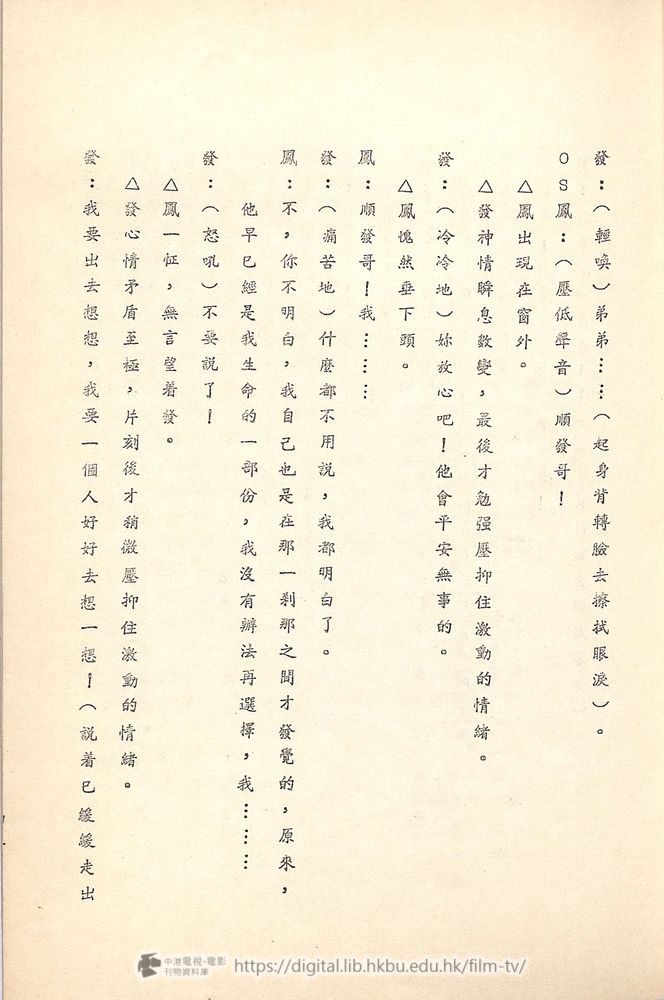 發：（輕喚）弟弟……（起身背轉臉去擦拭眼淚）。
OS鳳：（壓低聲音）順發哥！
△鳳出現在窗外。
△發神情瞬息數變，最後才勉强壓抑住激動的情緒。
發：（冷冷地）妳放心吧！他會平安無事的。
△鳳愧然垂下頭。
鳳：順發哥！我………
發：（痛苦地）什麼都不用説，我都明白了。
鳳：不，你不明白，我自己也是在那一刹那之間才發覺的，原來，
他早已經是我生命的一部份，我沒有辦法再選擇，我………
發：（怒吼）不要説了！
△鳳一怔，無言望着發。
△發心情矛盾至極，片刻後才稍微壓抑住激動的情緒。
發：我要出去想想，我要一個人好好去想一想！（説着已緩緩走出
中港電視·電影
刊物資料庫
https://digital.lib.hkbu.edu.hk/film-tv/